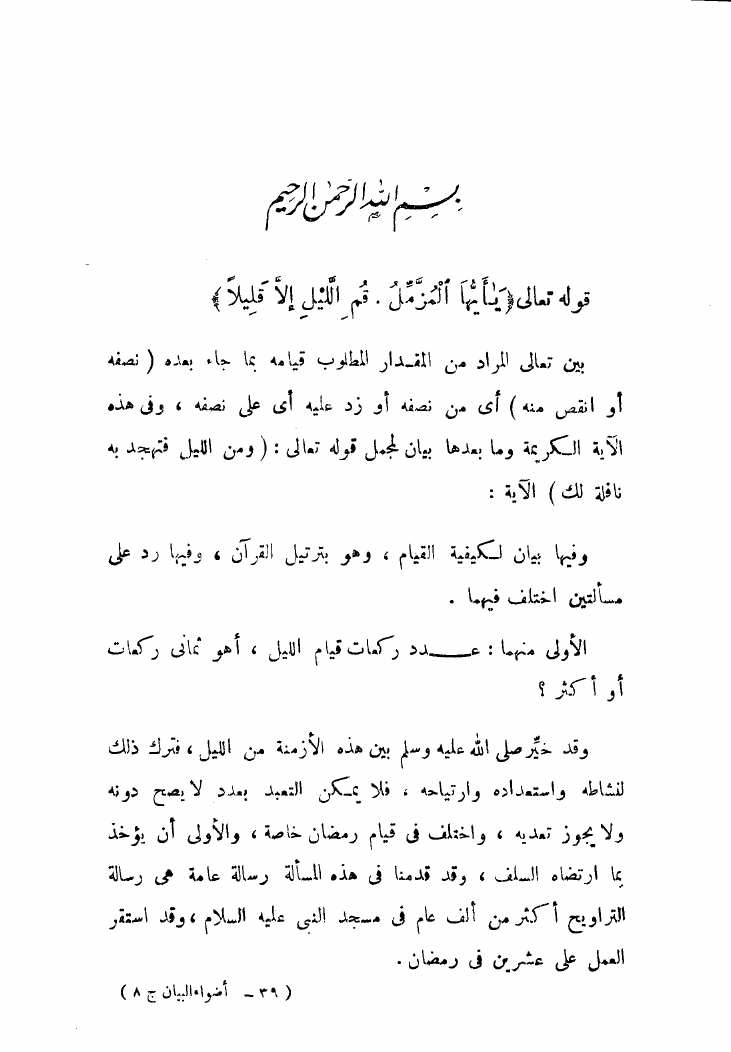 بسم الله الرحمن الرحيم
قوله تعالى ﴿يَـٰأَيُّهَا ٱلْمُزَّمِّلُ . قُمِ اللَّيْلَ إِلاَّ قَلِيلاً﴾
بين تعالى المراد من المقدار المطلوب قيامه بما جاء بعده ( نصفه
أو انقص منه ) أى من نصفه أو زد عليه أى على نصفه ، وفى هذه
الآية الكريمة وما بعدها بيان لمجمل قوله تعالى : ( ومن الليل فتهجد به
نافلة لك ) الآية :
وفيها بيان لكيفية القيام ، وهو بترتيل القرآن ، وفيها رد على
مسألتين اختلف فيهما .
الأولى منهما : عــدد ركعات قيام الليل ، أهو ثمانى ركعات
أو أكثر ؟
وقد خيِّر صلى الله عليه وسلم بين هذه الأزمنة من الليل ، فترك ذلك
لنشاطه واستعداده وارتياحه ، فلا يمكن التعبد بعدد لا يصح دونه
ولا يجوز تعديه ، واختلف فى قيام رمضان خاصة ، والأولى أن يؤخذ
بما ارتضاه السلف ، وقد قدمنا فى هذه المسألة رسالة عامة هى رسالة
التراويح أكثر من ألف عام فى مسجد النبى عليه السلام ، وقد استقر
العمل على عشرين فى رمضان .
( ٣٩ – أضواء البيان ج ٨ )